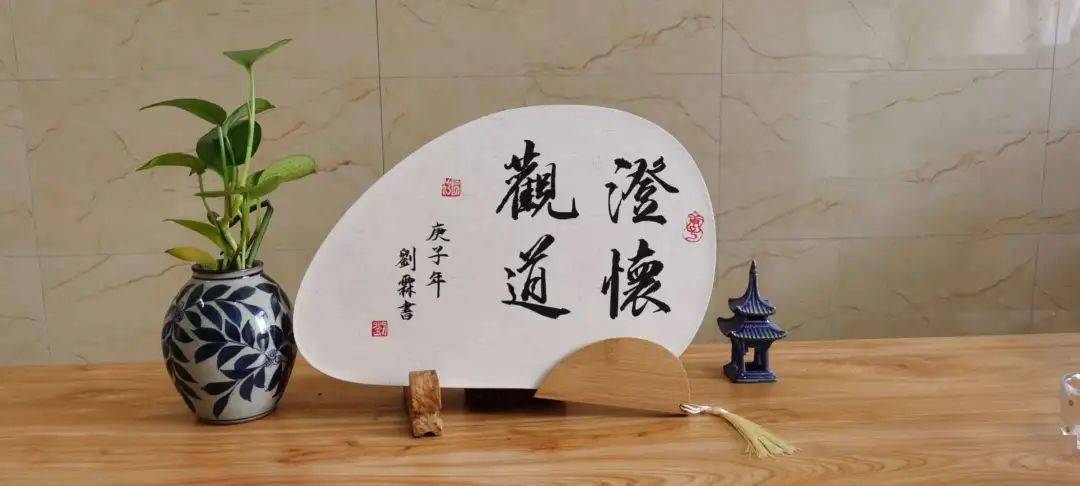 澄懷
觀道
庚子年
劉霖書